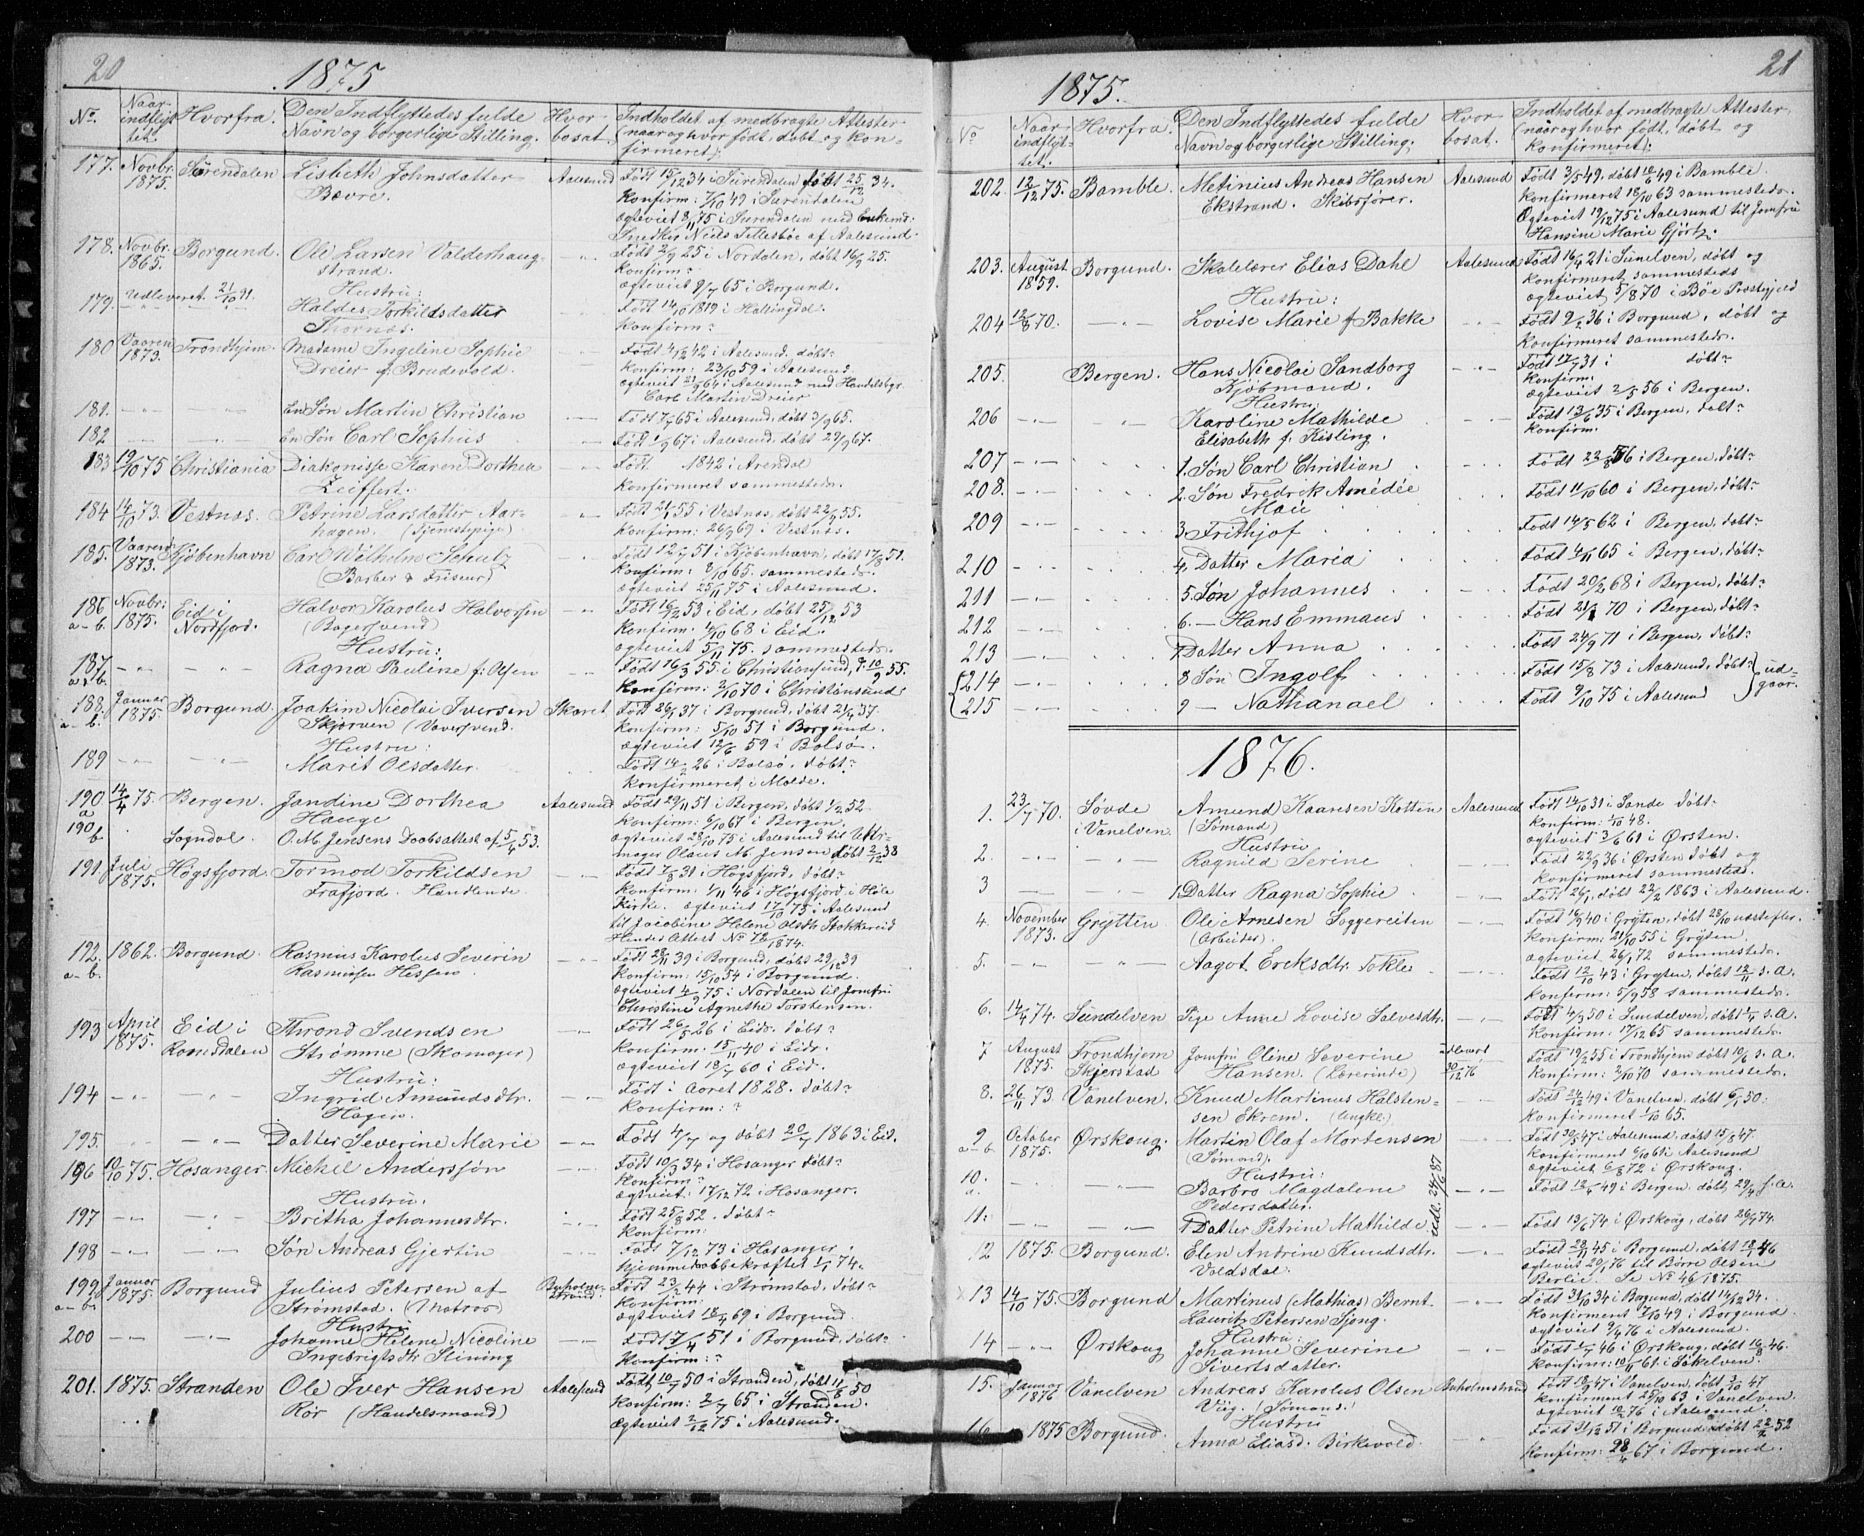 20
1875
No.
Naar indflyttet.
Hvorfra.
Den Indflyttedes fulde Navn og borgerlige Stilling.
Hvor bosat.
Indholdet af medbragte Attester (naar og hvor født, døbt og konfirmeret).
177. Novbr. 1875. Surendalen Lisbeth Johnsdatter Aalesund Født 15/12 34 i Surendalen døbt 25/12 34.
Bævre. Konfirm: 7/10 49 i Surendalen
ægteviet 8/11 75 i Surendalen med Enkemd.
Smed Niels Tellesbøe af Aalesund.
178. Novbr. 1865. Borgund. Ole Larsen Valderhaug- strand. Født 2/9 25 i Nordalen, døbt 16/9 25.
Konfirm:
ægteviet 9/7 65 i Borgund.
Hustru:
179. Udleveret 21/10 91. Haldes Torkildsdatter Født 14/10 1819 i Hallingdal.
Thornas. Konfirm:
180 Vaaren 1873. Trondhjem. Madame Ingeline Sophie Født 4/12 42 i Aalesund, døbt
Dreier f. Brudevold. Konfirm: 23/10 59 i Aalesund
ægteviet 21/9 64 i Aalesund med Handelsbgr.
Carl Martin Dreier
181. En Søn Martin Christian Født 7/7 65 i Aalesund, døbt 3/9 65.
182 En Søn Carl Sophus Født 1/9 67 i Aalesund, døbt 29/9 67.
183 19/10 75 Christiania Diakonisse Karen Dorthea Født 1842 i Arendal
Zeiffert. Konfirmeret sammesteds.
184 14/10 73. Vestnæs. Petrine Larsdatter Aar- Født 21/4 55 i Vestnæs, døbt 22/4 55.
hagen. (Tjenestepige) Konfirm: 26/9 69 i Vestnæs.
185. Vaaren 1873. Kjøbenhavn Carl Wilhelm Schutz Født 12/7 51 i Kjøbenhavn, døbt 17/8 51.
(Barber & Friseur) Konfirm: 8/10 65. sammesteds.
ægteviet 25/11 75 i Aalesund.
186 a-b. Novbr. 1875. Eid i Nordfjord. Halvor Karolus Halvorsen Født 16/12 53 i Eid, døbt 25/12 53
(Bagersvend) Konfirm: 4/10 68 i Eid.
Hustru: ægteviet 5/11 75. sammesteds.
187 a-b. Ragna Pauline f. Olsen Født 16/3 55 i Christiensund, d. 10/9 55.
Konfirm: 2/10 70 i Christiansund
188. a-b. Januar 1875 Borgund. Joakim Nicolai Iversen Skaret Født 26/1 37 i Borgund, døbt 21/4 37.
Skjorven (Væversvend. Konfirm: 5/10 51 i Borgund.
Hustru: ægteviet 12/6 59 i Bolsø.
189 Marit Olsdatter. Født 14/2 26 i Bolsø, døbt
Konfirmeret i Molde.
190 a 14/4 75. Bergen. Jandine Dorthea Aalesund Født 29/11 51 i Bergen, døbt 1/2 52
Hauge Konfirm: 6/10 67 i Bergen.
190 b Sogndal O. M. Jensens Daabsattest af 5/4 53. ægteviet 28/10 75 i Aalesund til Uhr-
mager Olaus M. Jensen døbt 2/12 38
191. Juli 1875. Høgsfjord. Tormod Torkildsen Født 7/8 31 i Høgsfjord, døbt
Frafjord. Handlende. Konfirm: 1/11 46 i Høgsfjord i Høle
Kirke. ægteviet 17/10 75 i Aalesund
til Jacobine Helene Olsdtr Stokkereid
Hendes Attest No 72/1874.
192. a-b. 1862. Borgund. Rasmus Karolus Severin Født 28/11 39 i Borgund, døbt 29/12 39
Rasmussen Hessen. Konfirm: 15/10 54 i Borgund.
ægteviet 4/9 75 i Nordalen til Jomfru
Christine Agnethe Torstensen.
193 April 1875. Eid i Romsdalen Thrond Svendsen Født 26/5 26 i Eid. døbt
Strømme (Skomager) Konfirm. 15/11 40 i Eid.
Hustru: ægteviet 18/7 60 i Eid.
194 Ingrid Amundsdtr. Født i Aaret 1828. døbt
Hagen. Konfirm:
195. Datter Severine Marie Født 4/7 og døbt 20/7 1863 i Eid.
196 10/10 75. Hosanger. Mickel Anderssøn Født 10/3 34 i Hosanger døbt
Konfirm:
Hustru. ægteviet: 17/12 72 i Hosanger.
197 Britha Johannesdtr. Født 25/8 52. døbt
Konfirm:
198 Søn Andreas Gjertin Født 7/12 73 i Hosanger,
hjemmedaab bekræftet 1/1 74.
199 a-b. Januar 1875 Borgund Julius Petersen af Buholm-strand. Født 23/2 44 i Strømstad, døbt
Strømstad. (Matros) Konfirm:
Hustru ægteviet 18/4 69 i Borgund.
200 Johanne Helene Nicoline Født 7/4 51 i Borgund, døbt
Ingebrigtsdtr Slining Konfirm:
201. 1875. Stranden Ole Iver Hansen Aalesund Født 10/5 50 i Stranden, døbt 11/8 50
Rør (Handelsmand) Konfirm: 2/7 65 i Stranden.
Ægteviet 2/12 75 i Aalesund.
21
1875.
No
Naar indflyttet.
Hvorfra.
Den Indflyttedes fulde Navn og borgerlige Stilling.
Hvor bosat.
Indholdet af medbragte Attester (naar og hvor født, døbt og konfirmeret).
202. 12/12 75. Bamble. Metinius Andreas Hansen Aalesund Født 3/5 49, døbt 10/6 49 i Bamble.
Ekstrand. Skibsfører. Konfirmeret 18/10 63 sammesteds.
Ægteviet 19/12 75 i Aalesund til Jomfru
Hansine Marie Gjørtz.
203. August 1859. Borgund. Skolelærer Elias Dahl Aalesund Født 16/4 21 i Sunelven, døbt og
Konfirmeret sammesteds
Hustru: ægteviet 5/8 70 i Bøe Præstegjeld
204 12/8 70. Lovise Marie f. Bakke Født 9/2 36 i Borgund, døbt og
Konfirmeret sammesteds.
205. Bergen. Hans Nicolai Sandborg Født 17/7 31 i døbt
Kjøbmand. Konfirm.
Hustru: ægteviet 2/5 56 i Bergen.
206 Karoline Mathilde Født 13/6 35 i Bergen, døbt
Elisabeth f. Kisling. Konfirm.
207 1. Søn Carl Christian Født 22/8 56 i Bergen, døbt
208. 2. Søn Fredrik Amédée Født 11/10 60 i Bergen, døbt
209 3. Frithjof Født 14/5 62 i Bergen, døbt
210 4. Datter Maria Født 4/11 65 i Bergen, døbt
211 5. Søn Johannes Født 20/2 68 i Bergen, døbt
212 6. — Hans Emmaus Født 21/1 70 i Bergen, døbt
213 7 Datter Anna Født 24/9 71 i Bergen, døbt
214 8 Søn Ingolf Født 15/8 73 i Aalesund, døbt udgaar.
215 9 — Nathanael Født 9/10 75 i Aalesund
1876.
1. 23/7 70. Søvde i Vanelven. Amund Kaansen Kotten Aalesund Født 14/10 31 i Sande døbt
(Sømand) Konfirm: 1/10 48.
Hustru ægteviet 3/6 61 i Ørsten.
2. Ragnild Serine Født 22/9 36 i Ørsten døbt og
Konfirmeret sammesteds.
3 1. Datter Ragna Sophie Født 26/1, døbt 22/2 1863 i Aalesund.
4. November 1873. Grytten Ole Arnesen Soggereiten Født 16/9 40 i Grytten, døbt 28/10 næstefter.
(Arbeider). Konfirm: 21/10 55 i Gryten.
ægteviet 26/1 72 sammesteds.
5. Aagot Ericksdtr. Tokle Født 12/10 43 i Gryten, døbt 12/11 s. A.
Konfirm: 5/9 58 sammesteds.
6. 14/4 74. Sundelven Pige Anne Lovise Salvesdtr. Født 4/3 50 i Sundelven, døbt 1/4 s. A.
Konfirm: 17/12 65 sammesteds.
7 August 1875. Trondhjem Skjerstad Jomfru Oline Severine Udlevert 30/12 76 Født 19/2 55 i Trondhjem døbt 10/6 s. A.
Hansen. (Lærerinde) Konfirm: 2/10 70 sammesteds.
8. 26/11 73. Vanelven. Knud Martinus Halsten- Født 24/12 49 i Vanelven, døbt 6/1 50.
sen Ekrem. (Ungkl) Konfirmeret 1/10 65.
9 a-b October 1875. Ørskoug. Martin Olaf Mortensen Født 30/5 47 i Aalesund, døbt 15/8 47.
(Sømand). Konfirment 6/10 61 i Aalesund
Hustru: ægteviet 6/8 72 i Ørskoug.
10. a. Barbro Magdalene Født 12/4 49 i Bergen, døbt 29/4 s. A.
Pedersdatter. udl. 24/6 87
11. 1 Datter Petrine Mathilde Født 13/6 74 i Ørskoug, døbt 26/7 74.
12 1875. Borgund. Elen Andrine Knudsdtr. Født 28/11 45 i Borgund, døbt 18/1 46
Voldsdal. ægteviet 29/1 76 til Børre Olsen
Berlie. Se No 46 1875.
13 14/10 75. Borgund Martinus (Mathias) Bernt Født 31/10 34 i Borgund, døbt 14/12 34.
Lauritz Petersen Sjong. Konfirment 7/10 49 i Borgund.
Hustru: ægteviet 9/4 76 i Aalesund.
14 Ørskoug Johanne Severine Født 5/7 46 i Ørskoug, døbt 16/8 46.
Sivertsdatter. Konfirm: 10/11 61 i Søkelven.
15. Januar 1876 Vanelven. Andreas Karolus Olsen Buholmstrand Født 18/9 47 i Vanelven, døbt 3/10 47
Viig. (Sømand.) Konfirment 25/10 63 i Vanelven.
Hustru ægteviet 10/2 76 i Aalesund.
16 1875 Borgund. Anna Eliasd. Birkevold. Født 31/12 51 i Borgund døbt 22/2 52
Konfirm: 28/4 67 i Borgund.